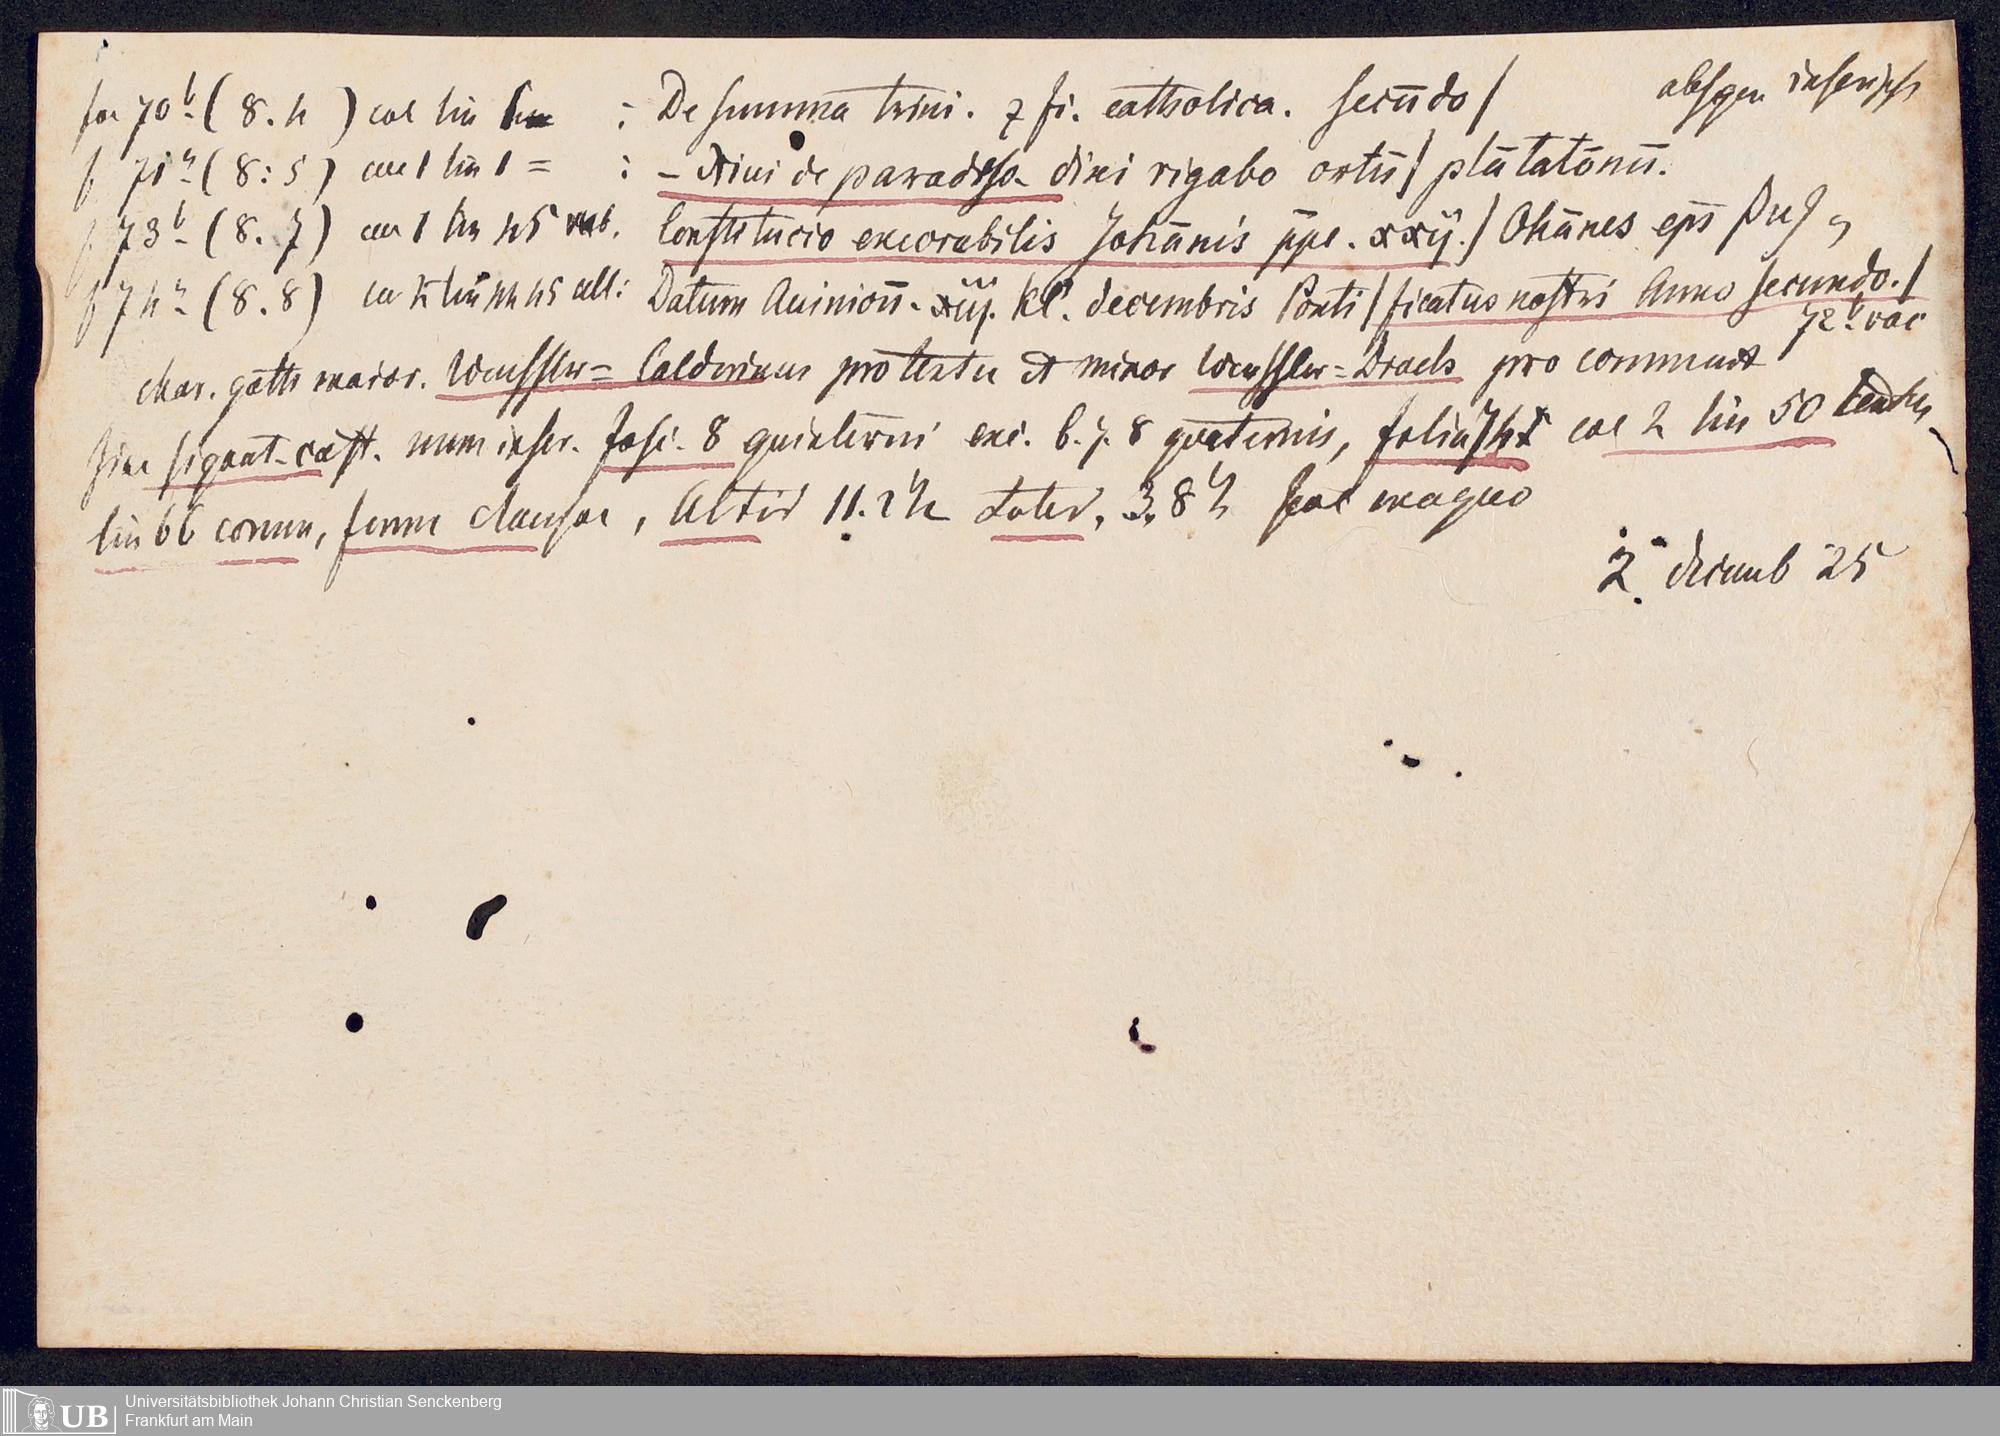 fol 70b (8.4) col lin : De summa trini. z fi. catholica. secūdo / absque inscript
f 71a (8:5) col 1 lin 1 = : – Xini de paradiso dixi rigabo ortū / plātatōnū.
f 73b (8.7) col 1 lin 45 rub. Constitucio execrabilis Johānis ppe. xxij. / Ohānes eps
f 74a (8.8) co 2 lin 44 45 ult: Datum Auinioñ. xiij. kl'. decembris Ponti / ficatus nostri Anno secundo. /
72b vac
char. goth maior. Wenssler = Calderinus pro textu et minor Wenssler = Drach pro comment
sine signat. cust. num inser. fasc. 8 quinterni exc. 6. 7. 8 quaternis, folia 74 col 2 lin 50 textus,
lin 66 comm, forme clausae, Altid 11.24 Latid, 3,84 fol magno
2. decemb 25
Universitätsbibliothek Johann Christian Senckenberg
Frankfurt am Main
UB